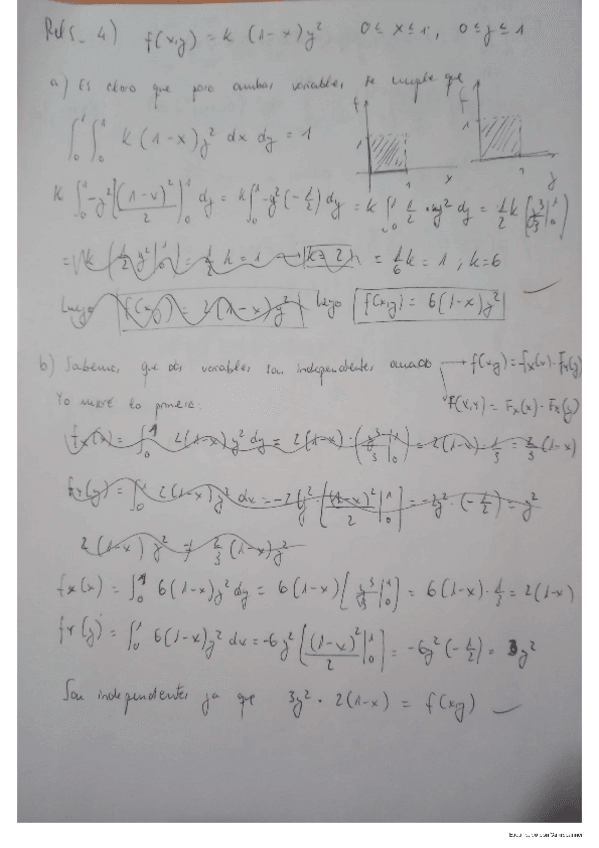 Rel 5_ 4) f(x,y) = k (1-x)y² 0 ≤ x ≤ 1, 0 ≤ y ≤ 1
a) Es claro que para ambas variables se cumple que
f 1 1 x
f 1 1 y
∫₀¹∫₀¹ k (1-x)y² dx dy = 1
k ∫₀¹ -y² [(1-x)²/2]₀¹ dy = k∫₀¹ -y² (-1/2) dy = k ∫₀¹ 1/2 · y² dy = 1/2 k [y³/3 |₀¹]
= k (1/2 y² |₀¹) = 1/2 k = 1 → k = 2 = 1/6 k = 1 ; k=6
Luego f(x,y) = 2(1-x)y² luego f(x,y) = 6(1-x)y²
b) Sabemos que dos variables son independientes cuando → f(x,y) = fx(x) · fy(y)
Yo usaré la primera: F(x,y) = Fx(x) · Fy(y)
fx(x) = ∫₀¹ 2(1-x)y² dy = 2(1-x) · (y³/3 |₀¹) = 2(1-x) · 1/3 = 2/3 (1-x)
fy(y) = ∫₀¹ 2(1-x)y² dx = -2y² [(1-x)²/2 |₀¹] = -2y² · (-1/2) = y²
2(1-x) y² ≠ 2/3 (1-x)y²
fx(x) = ∫₀¹ 6(1-x)y² dy = 6(1-x) [y³/3 |₀¹] = 6(1-x) · 1/3 = 2(1-x)
fy(y) = ∫₀¹ 6(1-x)y² dx = -6y² [(1-x)²/2 |₀¹] = -6y² (-1/2) = 3y²
Son independientes ya que 3y² · 2(1-x) = f(x,y)